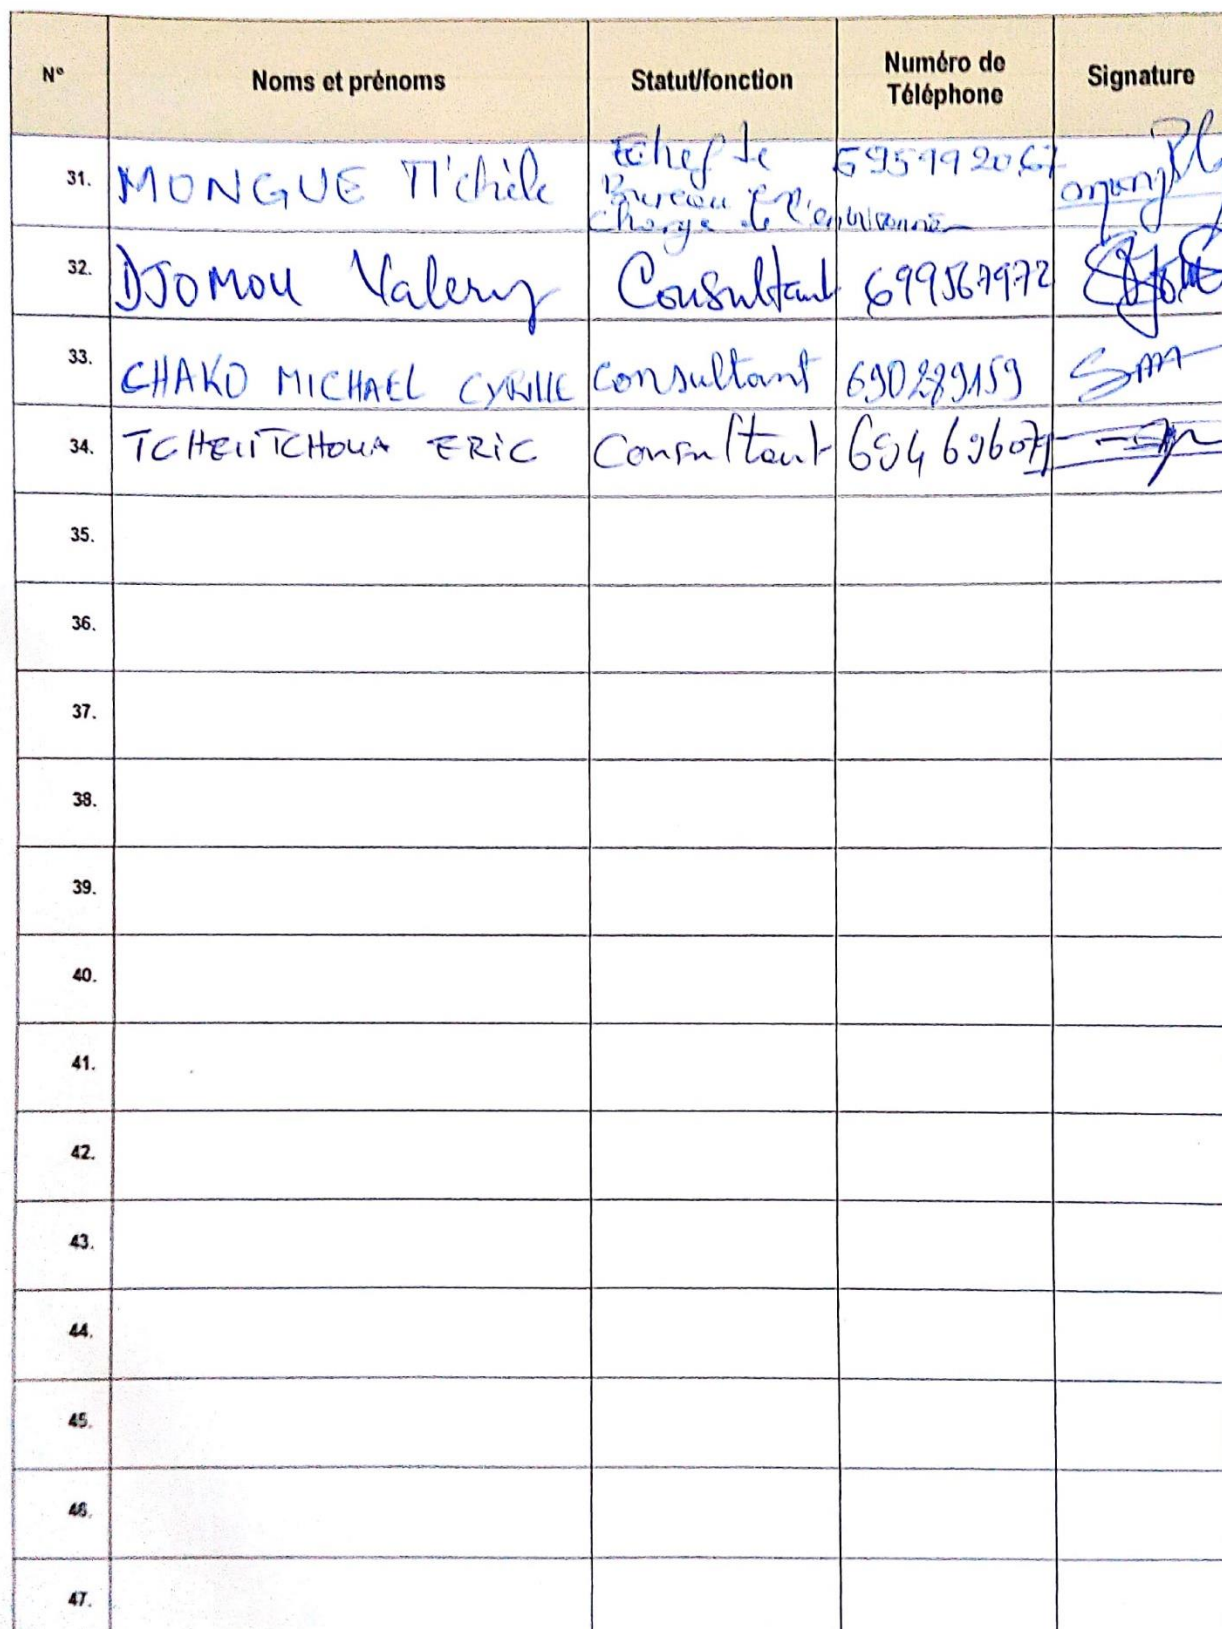 N° Noms et prénoms Statut/fonction Numéro de Téléphone Signature
31. MONGUE Michèle Chef de Bureau Chargé de l'environne 695992067
32. DJOMOU Valery Consultant 699567972
33. CHAKO MICHAEL CYRILLE Consultant 690289159
34. TCHEUTCHOUA ERIC Consultant 694696071
35.
36.
37.
38.
39.
40.
41.
42.
43.
44.
45.
46.
47.